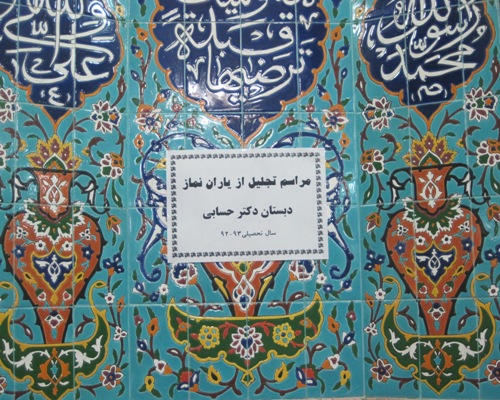 رسول الله
محمد
قبلة
ترضیها
علی
مراسم تجلیل از یاران نماز
دبستان دکتر حسابی
سال تحصیلی ۹۳-۹۲